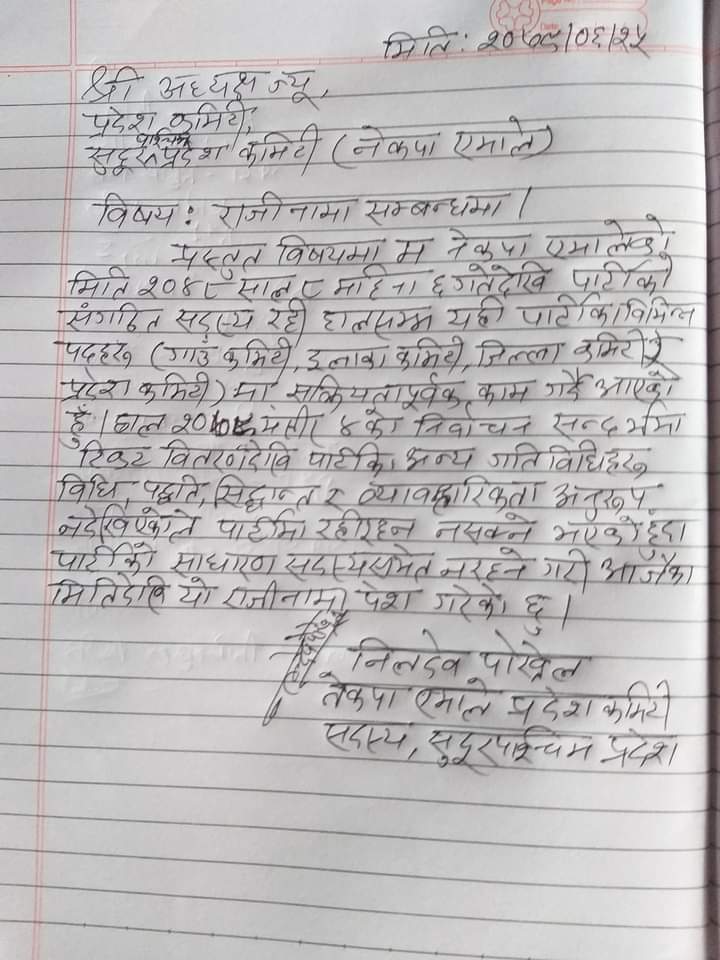 मिति: २०७९/०६/२५
श्री अध्यक्ष ज्यू,
प्रदेश कमिटी,
सुदूरपश्चिम प्रदेश कमिटी (नेकपा एमाले)
विषय: राजीनामा सम्बन्धमा।
प्रस्तुत विषयमा म नेकपा एमालेको
मिति २०४८ साल ८ महिना ६ गतेदेखि पार्टीको
संगठित सदस्य रही हालसम्म यही पार्टीका विभिन्न
पदहरु (गाउँ कमिटी, इलाका कमिटी, जिल्ला कमिटी र
प्रदेश कमिटी) मा सक्रियतापूर्वक काम गर्दै आएको
हुँ। हाल २०७९ मंसीर ४ को निर्वाचन सन्दर्भमा
टिकट वितरणदेखि पार्टीका अन्य गतिविधिहरु
विधि, पद्धति, सिद्धान्त र व्यावहारिकता अनुरुप
नदेखिएकोले पार्टीमा रहीरहन नसक्ने भएको हुँदा
पार्टीको साधारण सदस्यसमेत नरहने गरी आजैका
मितिदेखि यो राजीनामा पेश गरेको छु।
निलदेव पोख्रेल
नेकपा एमाले प्रदेश कमिटी
सदस्य, सुदूरपश्चिम प्रदेश